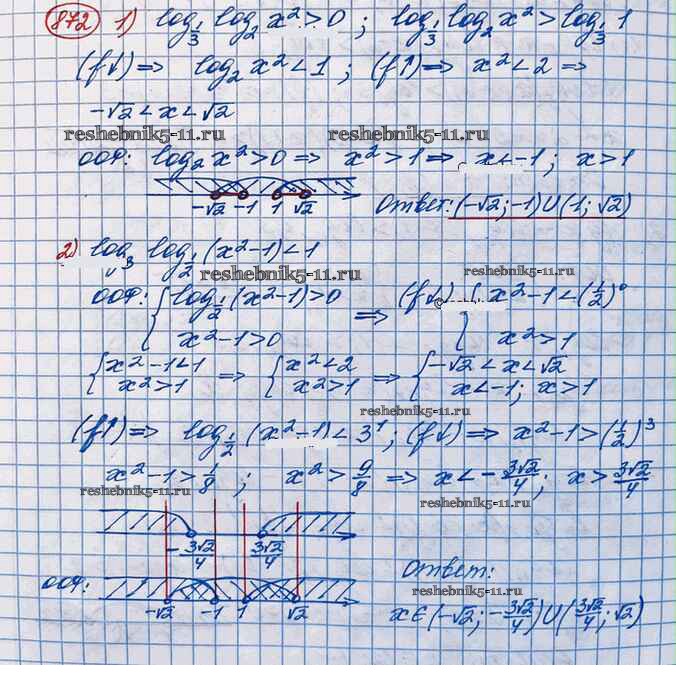 872 1) log_{1/3} log_2 x² > 0 ; log_{1/3} log_2 x² > log_{1/3} 1
(f↓) ⇒ log_2 x² < 1 ; (f↑) ⇒ x² < 2 ⇒
-√2 < x < √2
reshebnik5-11.ru reshebnik5-11.ru
ООФ: log_2 x² > 0 ⇒ x² > 1 ⇒ x < -1 ; x > 1
-√2 -1 1 √2
Ответ: (-√2; -1) U (1; √2)
2) log_3 log_{1/2} (x²-1) < 1
reshebnik5-11.ru reshebnik5-11.ru
ООФ: { log_{1/2} (x²-1) > 0 ⇒ (f↓) { x²-1 < (1/2)⁰
x²-1 > 0 x² > 1
{ x²-1 < 1 ⇒ { x² < 2 ⇒ { -√2 < x < √2
x² > 1 x² > 1 x < -1 ; x > 1
reshebnik5-11.ru
(f↑) ⇒ log_{1/2} (x²-1) < 3¹ ; (f↓) ⇒ x²-1 > (1/2)³
x²-1 > 1/8 ; x² > 9/8 ⇒ x < -3√2/4 ; x > 3√2/4
reshebnik5-11.ru reshebnik5-11.ru
-3√2/4 3√2/4
ООФ:
-√2 -1 1 √2
Ответ:
reshebnik5-11.ru
x ∈ (-√2; -3√2/4) U (3√2/4; √2)